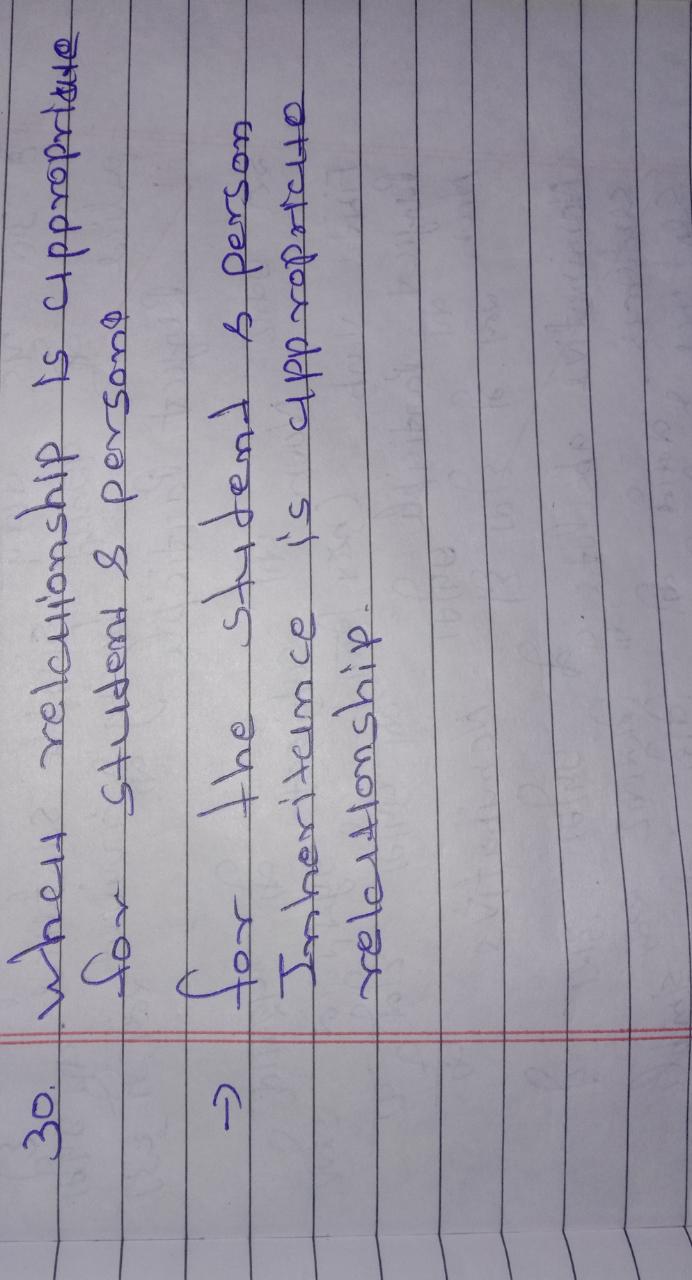 30. what relationship is appropriate
for student & person?
→ for the student & person
Inheritance is appropriate
relationship.